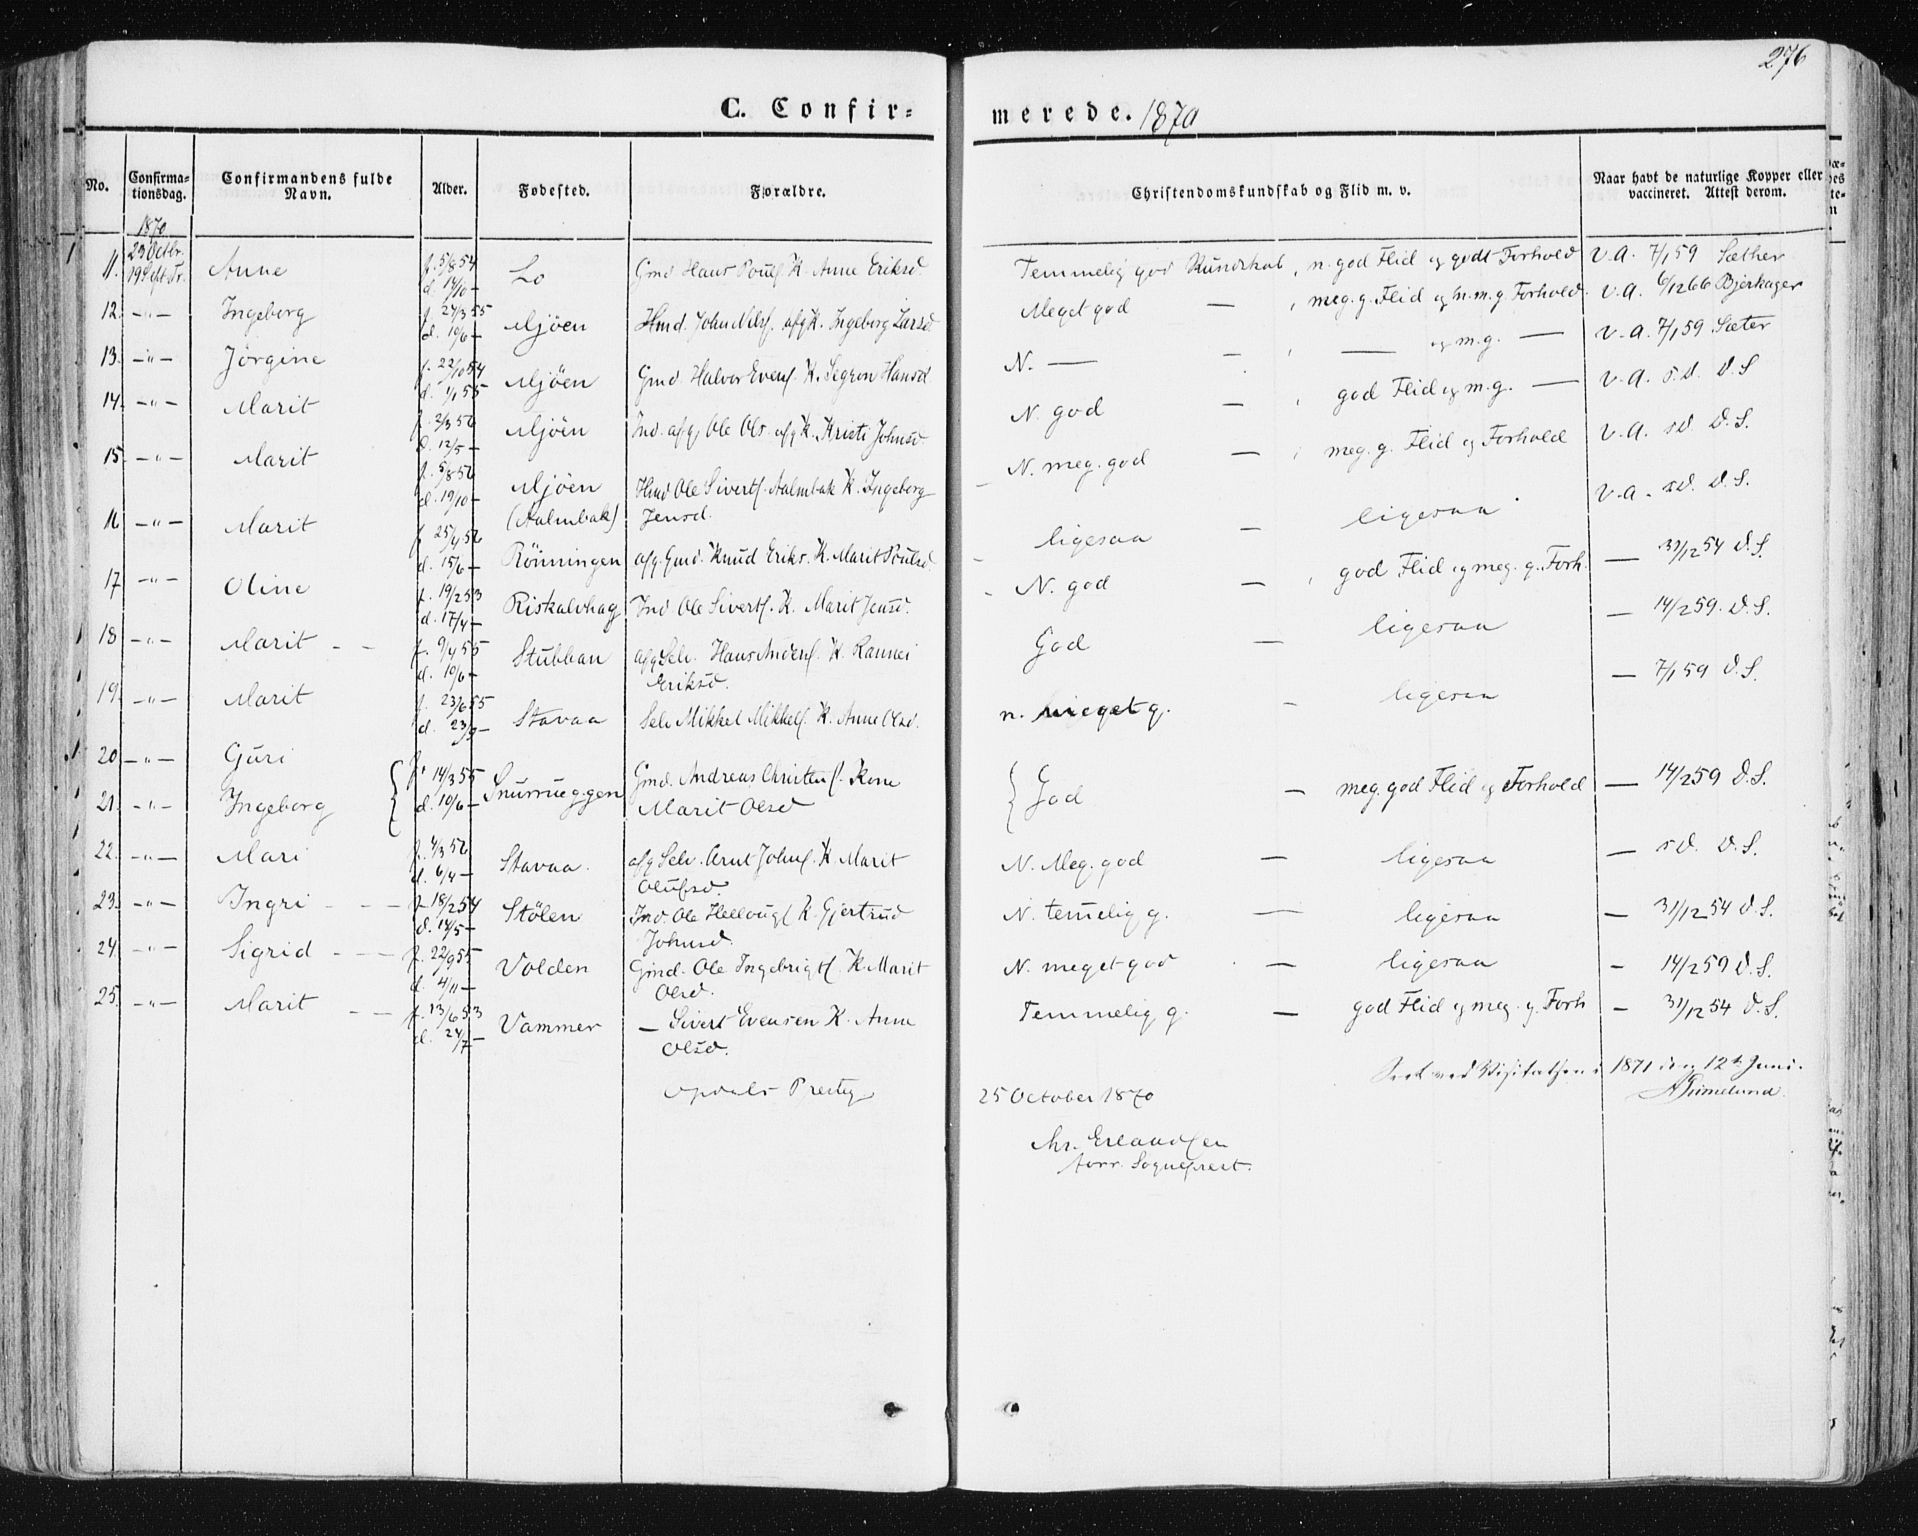 276
C. Confirmerede. 1870
No. Confirmationsdag. Confirmandens fulde Navn. Alder. Fødested. Forældre. Christendomskundskab og Flid m. v. Naar havt de naturlige Kopper eller vaccineret. Attest derom.
1870
11. 23 Octbr. 19 Sept Tr. Anne f. 5/8 54 d. 14/10 — Lo Gmd Hans Poulſ. K. Anne Eriksd Temmelig god Kundskab, n. god Flid og godt Forhold v.a. 7/1 59 Sæther
12. —"— Ingeborg f. 27/3 55 d. 10/6 — Mjöen Hmd. John Nilsſ. afg K. Ingeborg Larsd Meget god — , meg. g. Flid og m.m.g. Forhold. v.a. 6/12 66 Bjerkager
13. —"— Jörgine f. 22/10 54 d. 1/1 55 Mjöen Gmd. Halvor Evenſ. K. Segron Hansd N. — — , — og m.g. — v.a. 7/1 59 Sæter
14. —"— Marit f. 2/3 56 d. 12/5 — Mjöen Ind. afg. Ole Ols. afg K. Kristi Johnsd N. god — , god Flid og m.g. — v.a. s.d. D.S
15. —"— Marit f. 5/8 56 d. 19/10 — Mjöen (Aalmbak) Hmd Ole Sivertſ. Aalmbak K. Ingeborg Jensd. N. meg. god — , meg. g. Flid og Forhold v.a. sd. D.S.
16 —"— Marit f. 25/4 56 d. 15/6 — Rönningen afg. Gmd. Knud Eriks. K. Marit Poulsd. ligesaa — ligesaa v.a. sd. D.S.
17 —"— Oline f. 19/2 53 d. 17/4 — Riskalvhag Ind Ole Sivertſ. K. Marit Jensd. N. god — , god Flid og meg. g. Forh. — 31/12 54 D.S.
18 —"— Marit — — f. 9/4 55 d. 10/6 — Stubban afg Selv. Hans Anderſ. K. Rannei Eriksd. God — ligesaa — 14/2 59. D.S.
19. —"— Marit f. 23/6 55 d. 23/9 — Stavaa Selv Mikkel Mikkelſ. K. Anne Olsd. n. meget g. — ligesaa — 7/1 59 D.S.
20 —"— Guri
21. —"— Ingeborg { f. 14/3 55 d. 10/6 — Snurrueggen Gmd. Andreas Christenſ. Kone Marit Olsd { God — meg. god Flid og Forhold — 14/2 59 D.S.
22. —"— Mari f. 4/3 56 d. 6/4 — Stavaa. afg Selv. Arnt Johnſ. K. Marit Olufsd. N. Meg. god — ligesaa — sd. D.S.
23. —"— Ingri — — — f. 18/2 54 d. 14/5 — Stölen Ind. Ole Hellougſ K. Gjertrud Johnsd. N. temelig g. — ligesaa — 31/12 54 D.S.
24. —"— Sigrid — — — f. 22/9 55 d. 4/11 — Volden Gmd. Ole Ingebrigtſ. K. Marit Olsd. N. meget god — ligesaa — 14/2 59 D.S.
25. —"— Marit — — f. 13/6 53 d. 24/7 — Vammer — Sivert Evensen K. Anne Olsd. Temmelig g. — god Flid og meg. g. Forh — 31/12 54 D.S.
Seet ved Visitatsen i 1871 den 12te Juni.
Grimelund.
Opdals Prestg 25 October 1870
Chr. Erlandſen
Sogneprest.